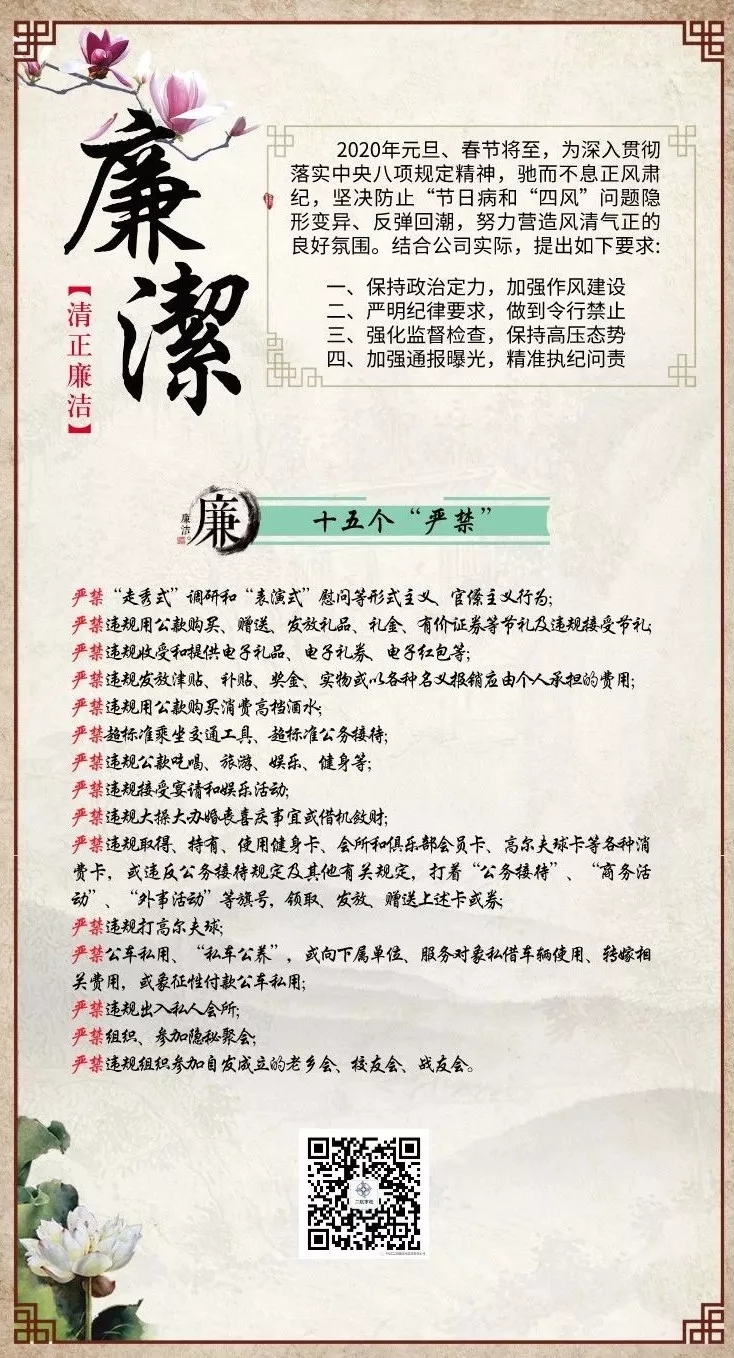 廉
潔
【清正廉洁】
2020年元旦、春节将至，为深入贯彻
落实中央八项规定精神，驰而不息正风肃
纪，坚决防止“节日病和“四风”问题隐
形变异、反弹回潮，努力营造风清气正的
良好氛围。结合公司实际，提出如下要求:
一、保持政治定力，加强作风建设
二、严明纪律要求，做到令行禁止
三、强化监督检查，保持高压态势
四、加强通报曝光，精准执纪问责
廉
廉洁
十五个“严禁”
严禁“走秀式”调研和“表演式”慰问等形式主义、官僚主义行为;
严禁违规用公款购买、赠送、发放礼品、礼金、有价证券等节礼及违规接受节礼;
严禁违规收受和提供电子礼品、电子礼券、电子红包等;
严禁违规发放津贴、补贴、奖金、实物或以各种名义报销应由个人承担的费用;
严禁违规用公款购买消费高档酒水;
严禁超标准乘坐交通工具、超标准公务接待;
严禁违规公款吃喝、旅游、娱乐、健身等;
严禁违规接受宴请和娱乐活动;
严禁违规大操大办婚丧喜庆事宜或借机敛财;
严禁违规取得、持有、使用健身卡、会所和俱乐部会员卡、高尔夫球卡等各种消
费卡，或违反公务接待规定及其他有关规定，打着“公务接待”、“商务活
动”、“外事活动”等旗号，领取、发放、赠送上述卡或券;
严禁违规打高尔夫球;
严禁公车私用、“私车公养”，或向下属单位、服务对象私借车辆使用、转嫁相
关费用，或象征性付款公车私用;
严禁违规出入私人会所;
严禁组织、参加隐秘聚会;
严禁违规组织参加自发成立的老乡会、校友会、战友会。